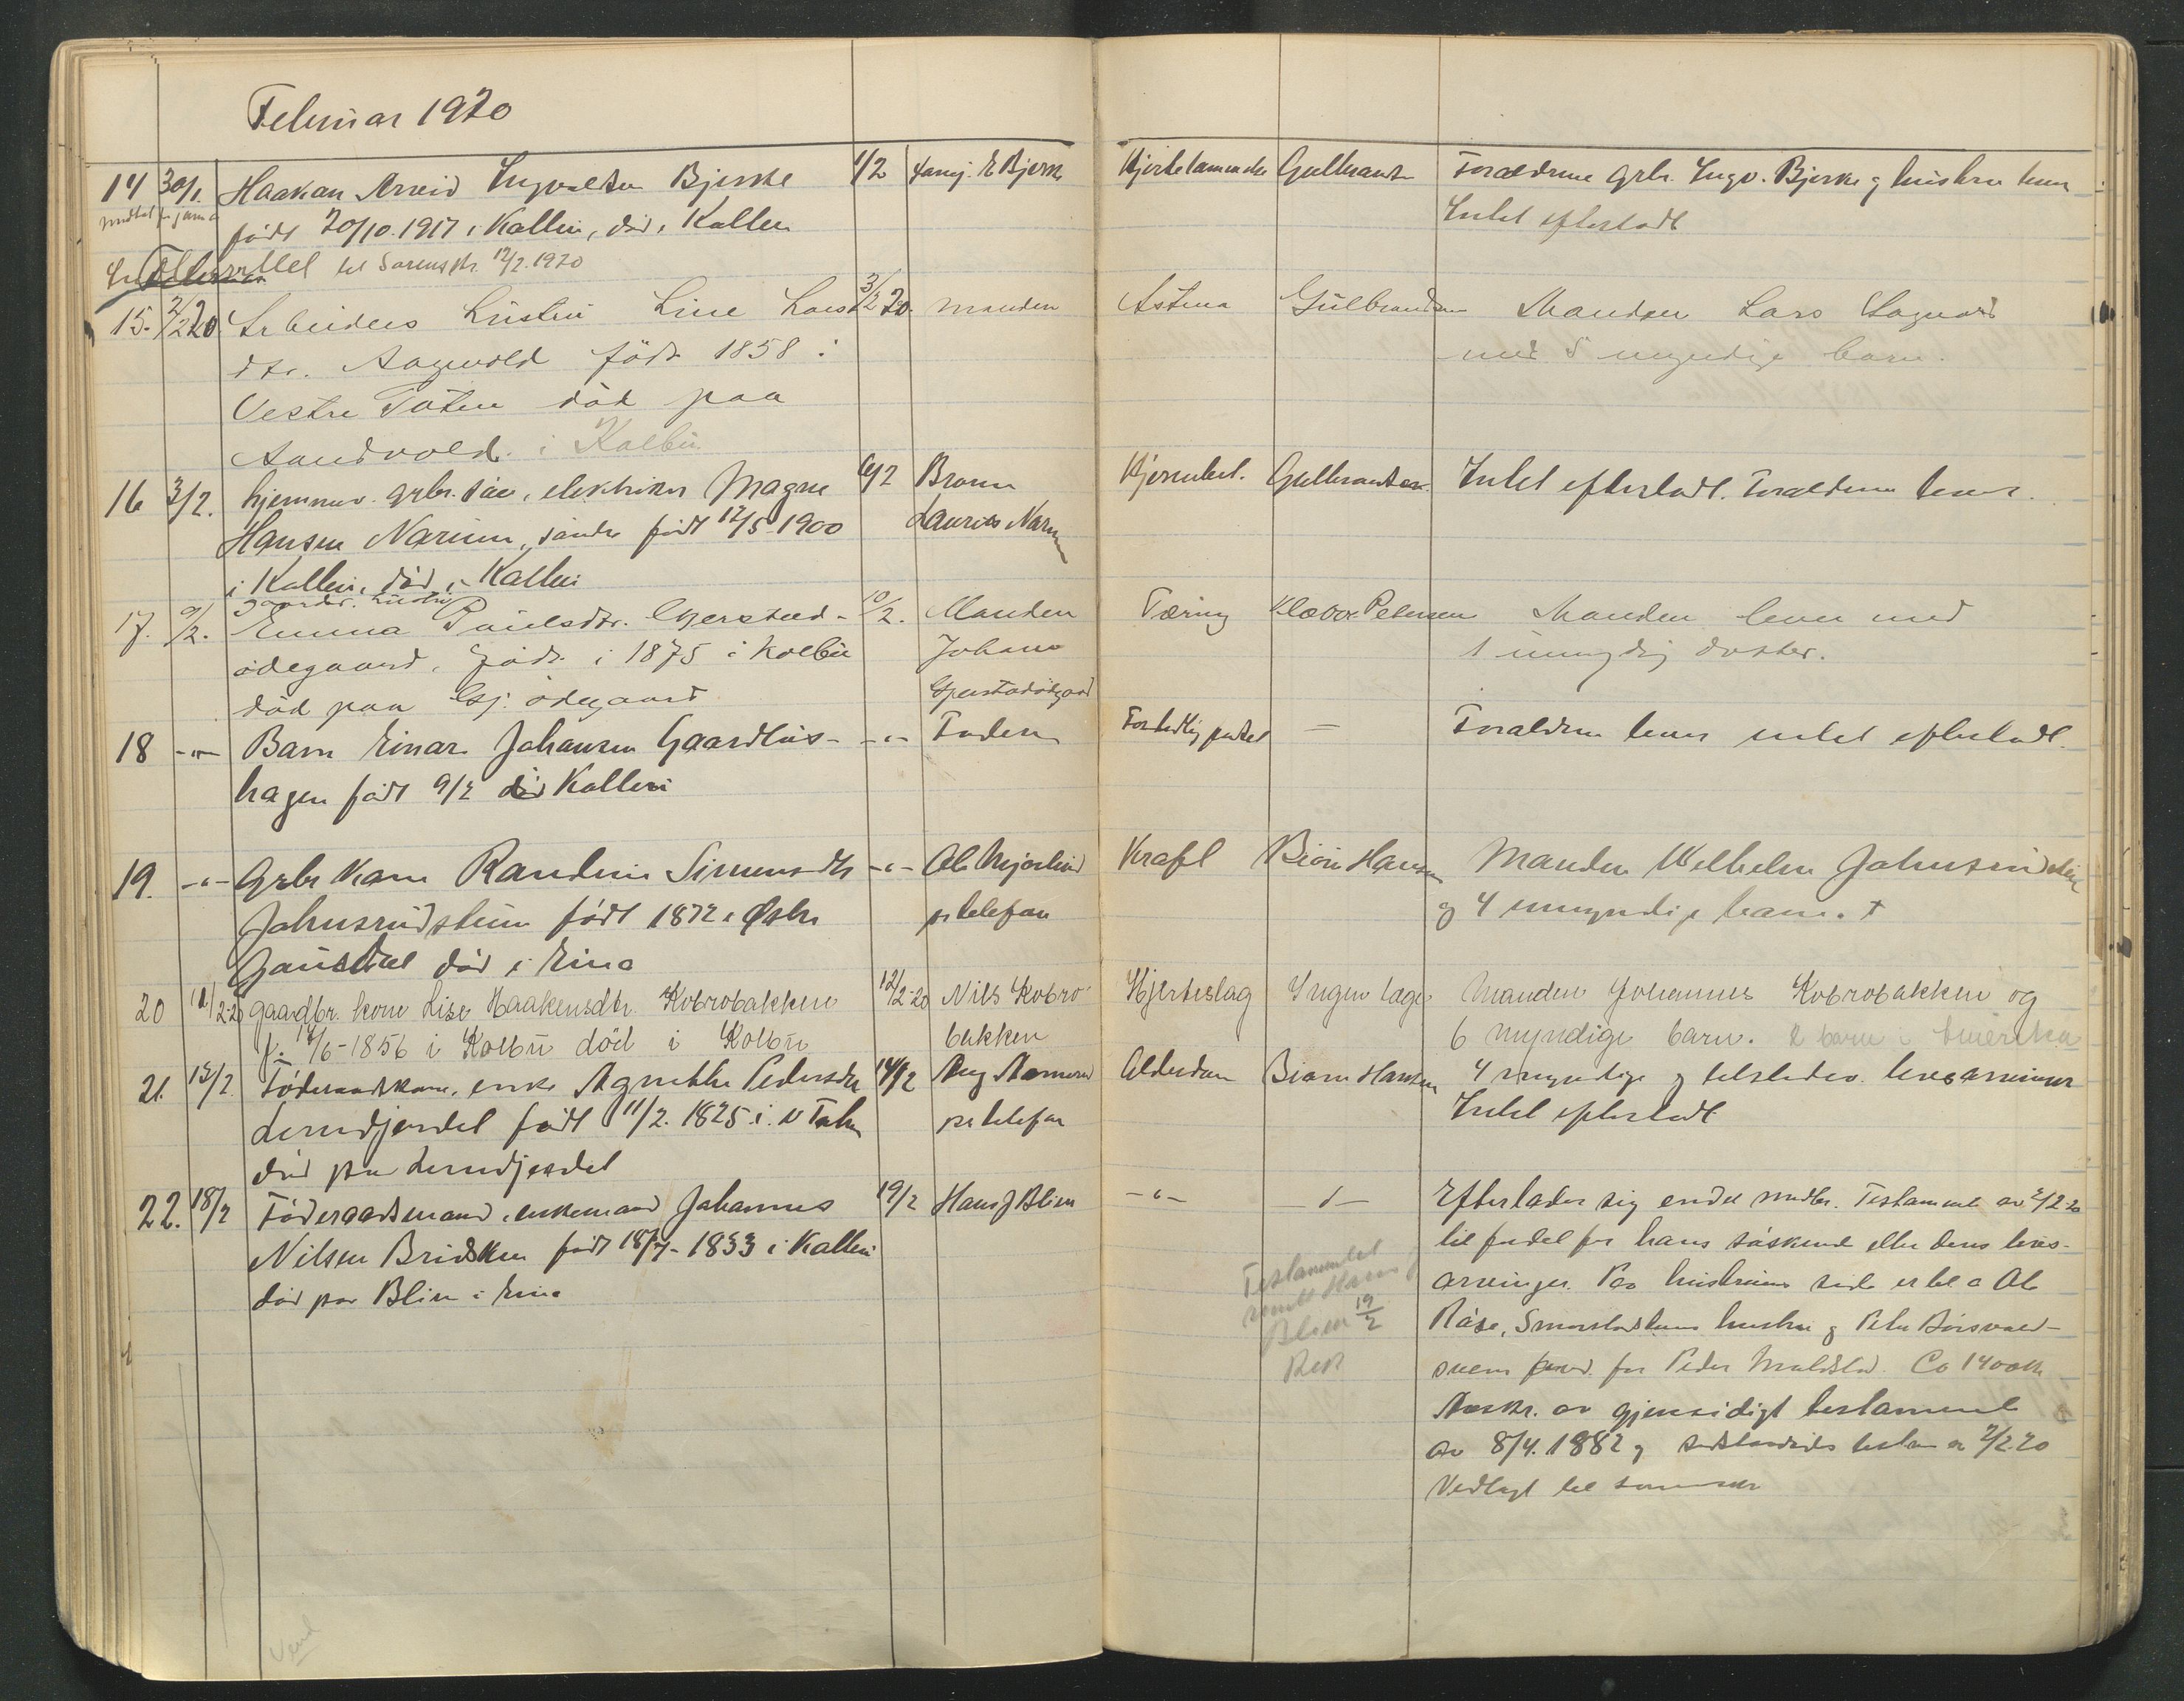 Februar 1920
14 30/1. Haakon Arvid Ingvaldsen Bjerke 1/2 Ingv. E Bjerke Hjertelammelse Gulbrandsen Forældrene grbr. Ingv. Bjerke g hustru lever
født 20/10.1917 i Kolbu, død i Kolbu Intet efterladt
til Sorenskr. 12/2.1920
15. 2/2 20 Arbeiders hustru Line Lars 3/2 20. manden Astma Gulbrandsen Manden Lars Aagvold
dtr. Aagvold født 1858 i med 5 myndige barn.
Vestre Toten død paa
Sandvold i Kolbu
16 3/2. hjemmev. grbr. søn, elektriker Magne 6/2 Broren Hjernebet. Gulbrandsen Intet efterladt. Forældrene lever.
Hansen Narum, søndre født 12/5 1900 Laurits Narum
i Kolbu, død i Kolbu
gaardbr. hustru
17. 9/2. Emma Paulsdtr. Gjerstad- 10/2. Manden Tæring Kløvor Petersen Manden lever med
ødegaard, født i 1875 i Kolbu Johans 1 umyndig dotter.
død paa Gj. ødegaard Gjerstadødegaard
18 -"- Barn Einar Johansen Gaardløs- -"- Faderen For tidlig født — Forældrene lever intet efterladt.
hagen født 9/2 død Kolbu
19. -"- Grbr kone Randine Simensdtr -"- Ole Mjørlund Kræft Bjørn Hansen Manden Wilhelm Johnsrudstuen
Johnsrudstuen født 1872 i Østre pr telefon og 4 umyndige barn. +
Gausdal død i Eina
20 11/2-20 gaardbr. kone Lise Haakensdtr. Kobrobakken 12/2-20 Nils Kobro- Hjerteslag Ingen læge Manden Johannes Kobrobakken og
f. 14/6-1856 i Kolbu död i Kolbu bakken 6 myndige barn. 2 barn i Amerika
21. 13/2. Føderaadskone, enke Agnethe Pedersdtr 14/2 Aug Aamund Alderdom Bjørn Hansen 4 myndige g tilstedev. livsarvinger
Lundjordet født 11/2. 1825 i V Toten pr telefon Intet efterladt
død paa Lundjordet
22. 18/2 Föderaadsmand, enkemand Johannes 19/2 Hans J Blien -"- -"- Efterlader sig endel midler. Testamente av 2/2 20
Nilsen Bridsken født 18/7-1833 i Kolbu til fordel for hans søskende eller deres livs-
død paa Blien i Eina Testamentet arvinger. Paa hustruens side er bl a Ole
sendt Hans J Røise, hustru g Peter
Blien 19/2 for Peder. Ca 1400 kr
Avskr. av gjensidigt testamente
av 8/4. 1882 g av 2/2.20
Vedlagt til sorenskr
Vend